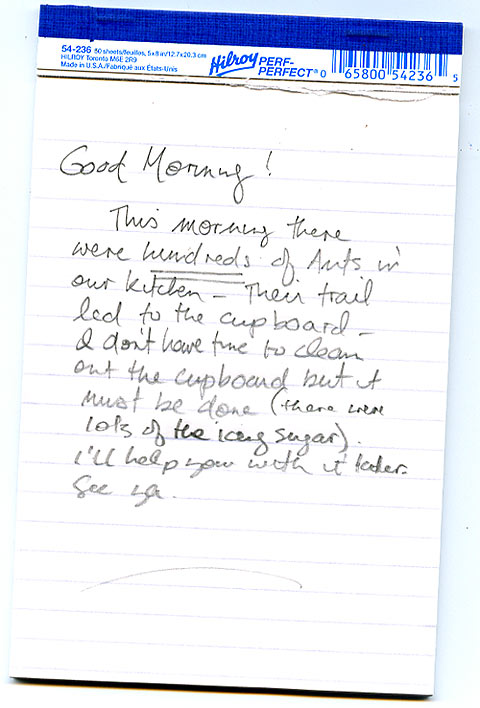 54-236 50 sheets/feuilles, 5x8 in/12.7x20.3 cm
HILROY Toronto M6E 2R9
Made in U.S.A./Fabriqué aux États-Unis
Hilroy PERF-
PERFECT® 0 65800 54236 5
Good Morning!
This morning there
were hundreds of Ants in
our kitchen – Their trail
led to the cupboard –
I don't have time to clean
out the cupboard but it
must be done (there were
lots of the icing sugar).
I'll help you with it later.
See ya.